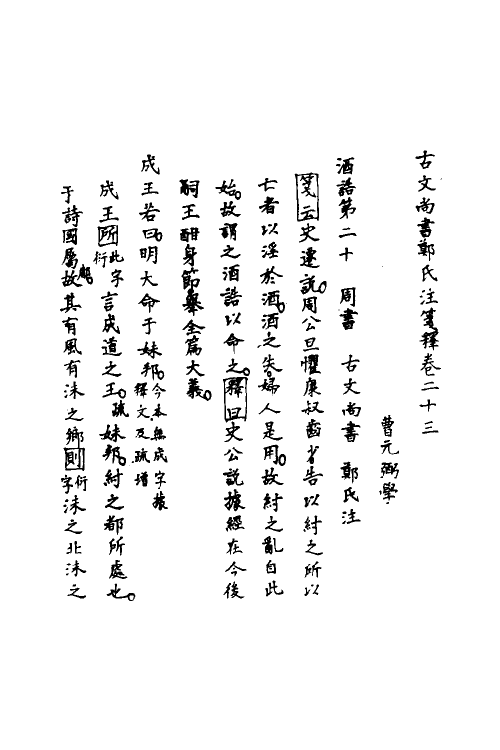 古文尚書鄭氏注箋釋卷二十三
曹元弼學
酒誥第二十　周書　古文尚書　鄭氏注
箋云史遷說周公旦懼康叔齒少告以紂之所以
亡者以淫於酒酒之失婦人是用故紂之亂自此
始故謂之酒誥以命之釋曰史公說據經在今後
嗣王酣身節舉全篇大義
成王若曰明大命于妹邦今本無成字據
釋文及疏增
成王所此字
衍言成道之王疏妹邦紂之都所處也
于詩國屬鄘故其有風有沬之鄉則衍
字沬之北沬之